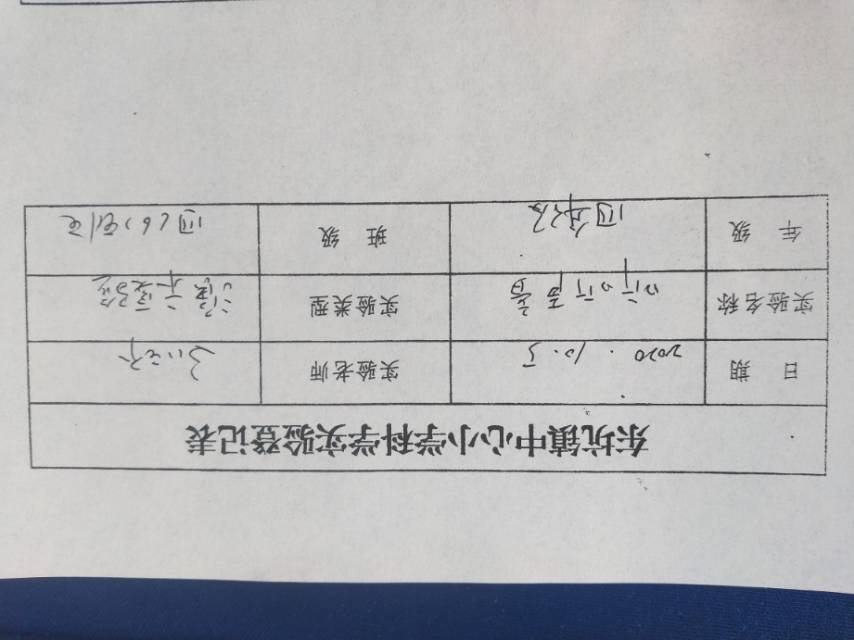 东坑镇中心小学科学实验登记表
日 期 2020. 10. 实验老师
实验名称 听听声音 实验类型 演示实验
年 级 四年级 班 级 四(6)